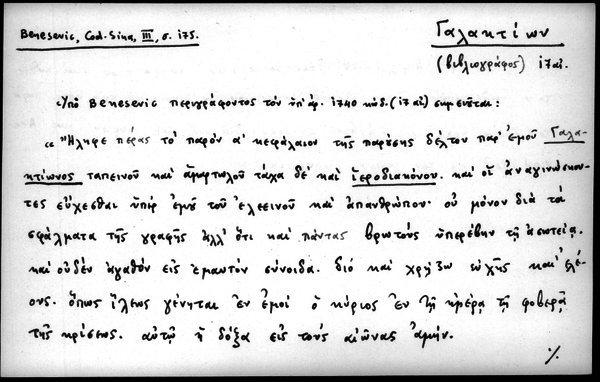 Benesevic, Cod. Sina, III, σ. 175.
Γαλακτίων
(βιβλιογράφος) 17 αἰ.
Ὑπὸ Benesevic περιγράφοντος τὸν ὑπ' ἀρ. 1740 κώδ. (17 αἰ) σημειοῦται:
« Ἤληφε πέρας τὸ παρὸν α' κεφάλαιον τῆς παρούσης δέλτου παρ' ἐμοῦ Γαλα-
κτίωνος ταπεινοῦ καὶ ἁμαρτωλοῦ τάχα δὲ καὶ ἱεροδιακόνου. καὶ οἱ ἀναγινώσκον-
τες εὔχεσθαι ὑπὲρ ἐμοῦ τοῦ ἐλεεινοῦ καὶ ἀπανθρώπου· οὐ μόνον διὰ τὰ
σφάλματα τῆς γραφῆς ἀλλ' ὅτι καὶ πάντας βρωτοὺς ὑπερέβην τῇ ἀσωτείᾳ.
καὶ οὐδὲν ἀγαθὸν εἰς ἐμαυτὸν σύνοιδα. διὸ καὶ χρῄζω εὐχῆς καὶ ἐλέ-
ους. ὅπως ἵλεως γένηται ἐν ἐμοὶ ὁ κύριος ἐν τῇ ἡμέρᾳ τῇ φοβερᾷ
τῆς κρίσεως. αὐτῷ ἡ δόξα εἰς τοὺς αἰῶνας ἀμήν.
./.